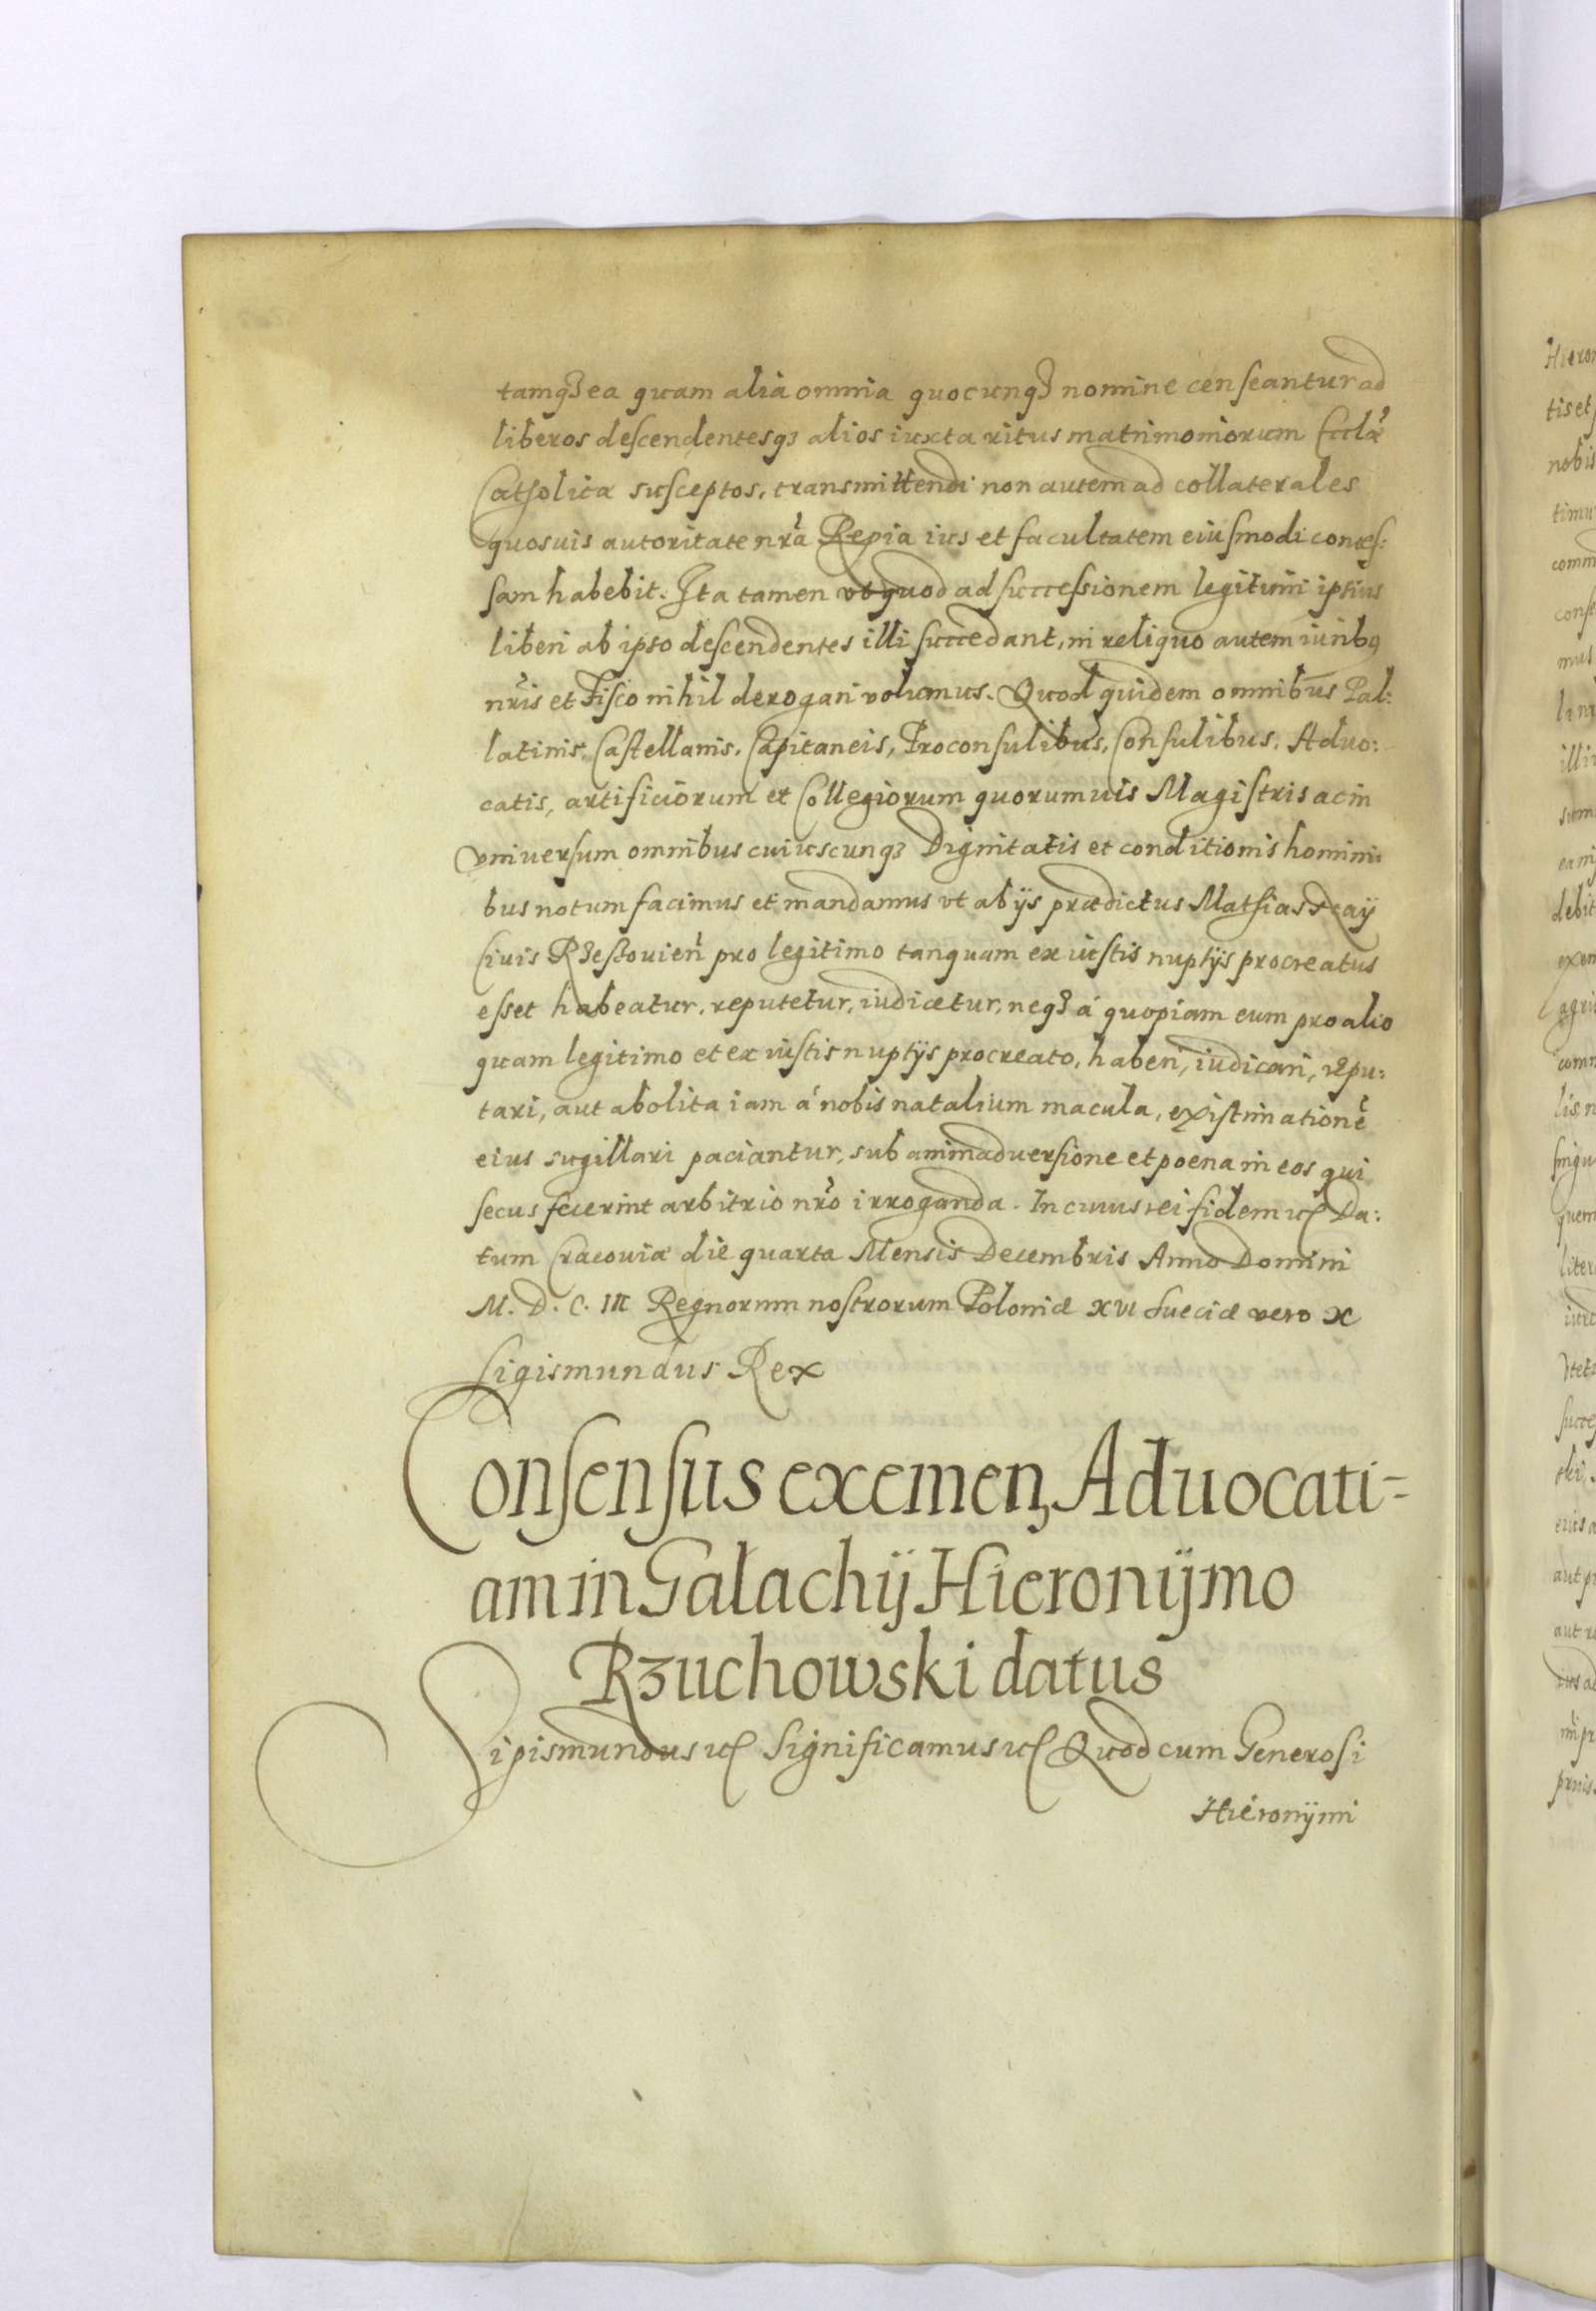 tamqȝ ea quam alia omnia quocunqȝ nomine censeantur ad
liberos descendentesqȝ alios iuxta ritus matrimoniorum Ecclæ
Catholicæ susceptos, transmittendi non autem ad collaterales
quosuis autoritate nr̃a Regia ius et facultatem eiusmodi conces:
sam habebit. Ita tamen vt quod ad successionem legitimi ipsius
liberi ab ipso descendentes illi succedant, in reliquo autem iuribꝰ
nr̃is et Fisco nihil derogari volumus. Quod quidem omnibus Pal:
latinis, Castellanis, Capitaneis, Proconsulibus, Consulibus, Aduo:
catis, artificiorum et Collegiorum quorumuis Magistris ac in
vniuersum omnibus cuiuscunqȝ Dignitatis et conditionis homini:
bus notum facimus et mandamus vt ab ijs prædictus Mathias
Ciuis Rzeszouien̄ pro legitimo tanquam ex iustis nuptijs procreatus
esset habeatur, reputetur, iudicetur, neqȝ á quopiam eum pro alio
quam legitimo et ex iustis nuptijs procreato, haberi, iudicari, repu:
tari, aut abolita iam á nobis natalium macula, existimationē
eius sugillari paciantur, sub animaduersione et poena in eos qui
secus fecerint arbitrio nr̃o irroganda. In cuius rei fidem etc Da:
tum Cracouiæ die quarta Mensis Decembris Anno Domini
M. D. C. III Regnorum nostrorum Poloniæ XVI Sueciæ vero X
Sigismundus Rex
Consensus exemen, Aduocati=
am in Galachij Hieronijmo
Rzuchowski datus
Sigismundus etc Significamus etc Quod cum Generosi
Hieronijmi